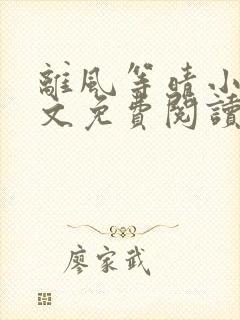 離風等晴小
文免費閱讀
廖家武